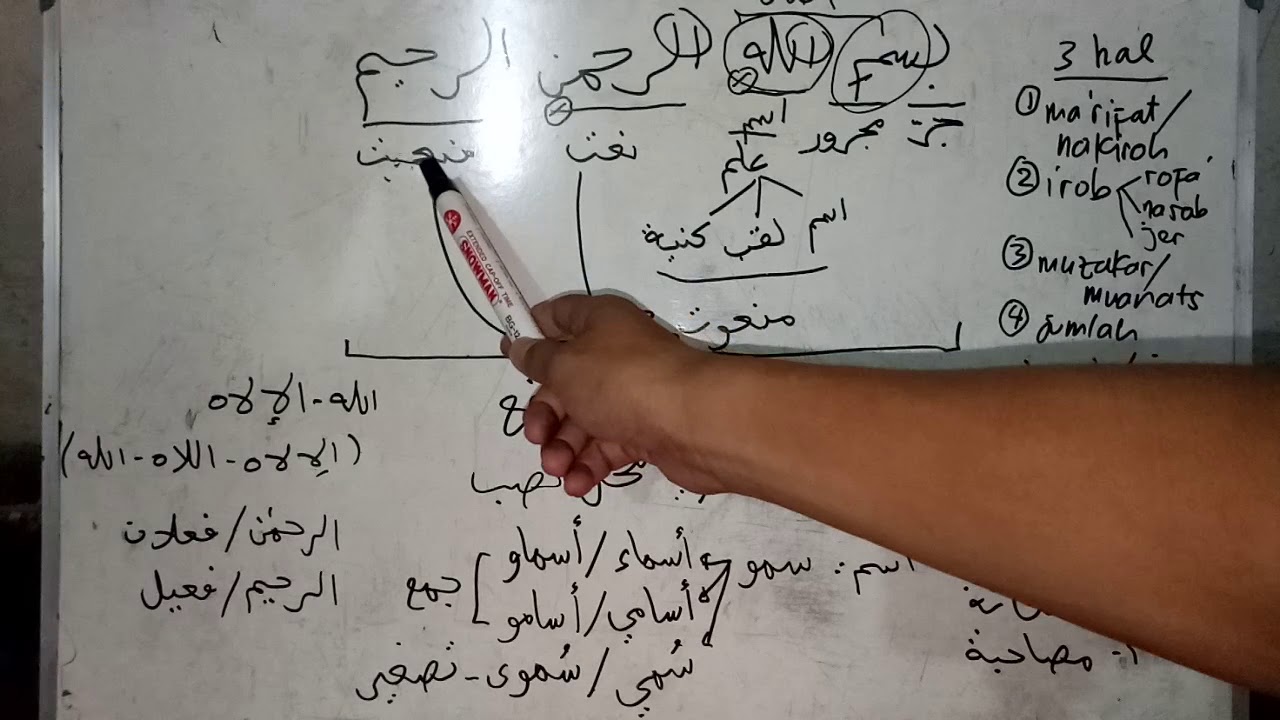 بسم الله الرحمن الرحيم
جر مجرور
اسم
علم
نعت
اسم لقب كنية
منعوت
3 hal
① ma'rifat/
nakiroh
② irob
rofa'
nasob
jer
③ muzakar/
muanats
④ jumlah
الله - الإلاه
(الإلاه - اللاه - الله)
الرحمن / فعلان
الرحيم / فعيل
محل نصب
اسم : سمو
أسماء / أسماو
أسامي / أسامو
جمع
سُمي / سُموى - تصغير
١ - مصاحبة
SNOWMAN
EXTENDED CAP-OFF TIME